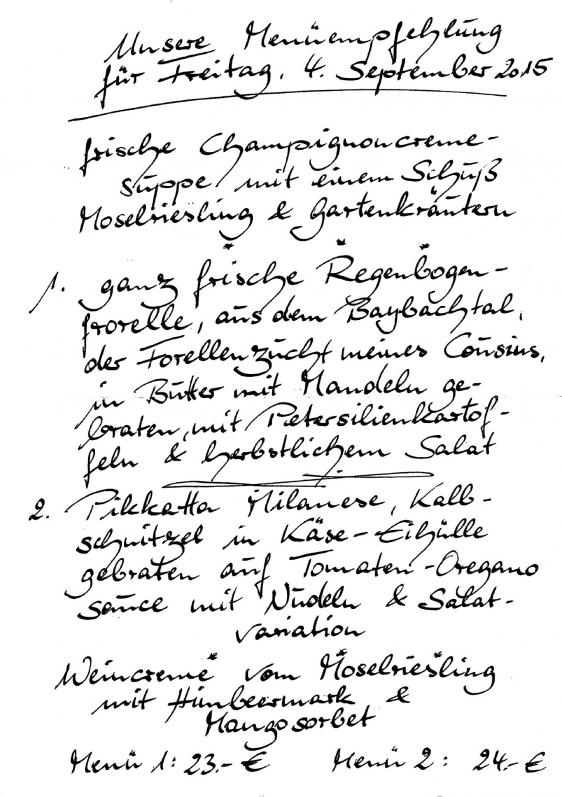 Unsere Menüempfehlung
für Freitag, 4. September 2015
frische Champignoncreme-
suppe mit einem Schuß
Moselriesling & Gartenkräutern
*
1. ganz frische Regenbogen-
forelle, aus dem Baybachtal,
der Forellenzucht meines Cousins,
in Butter mit Mandeln ge-
braten, mit Petersilienkartof-
feln & herbstlichem Salat
2. Pikkatta Milanese, Kalb-
schnitzel in Käse-Eihülle
gebraten auf Tomaten-Oregano
sauce mit Nudeln & Salat-
variation
*
Weincreme vom Moselriesling
mit Himbeermark &
Mangosorbet
Menü 1: 23.- € Menü 2: 24.- €